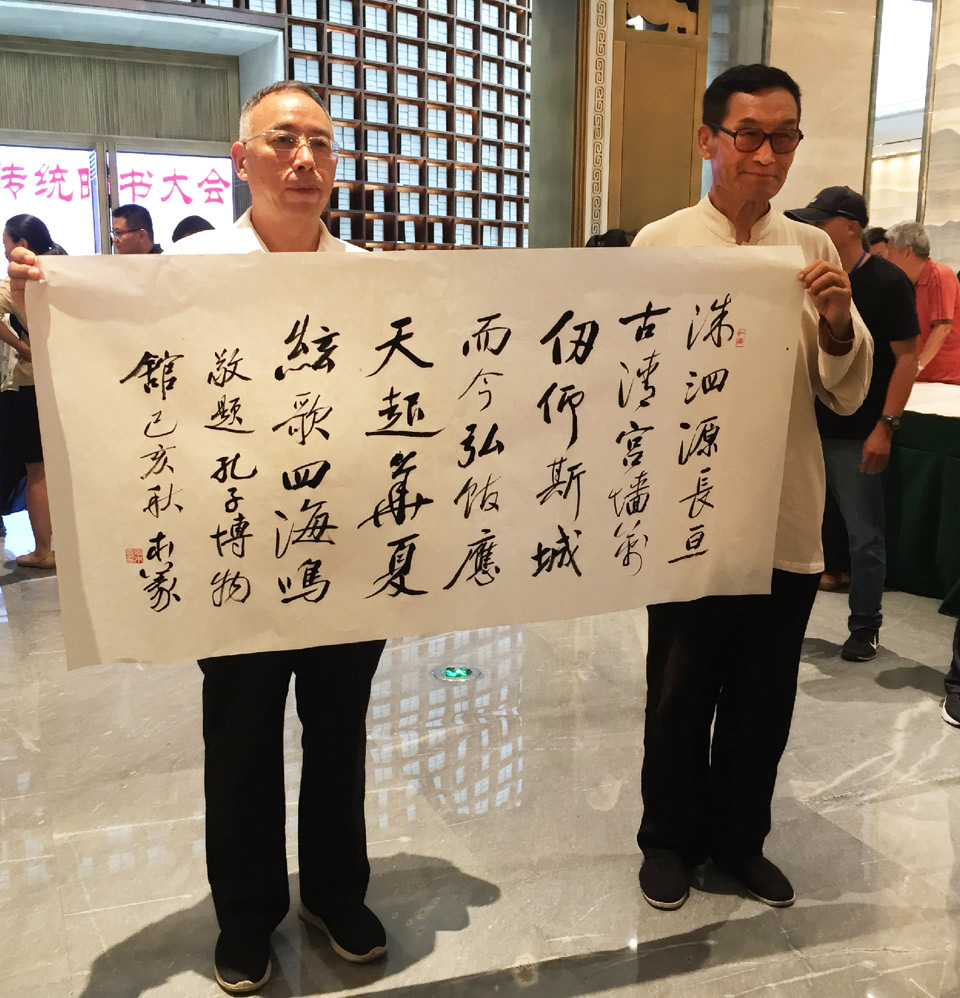 传统 书大会
洙泗源長亘
古清宫墙萬
仞仰斯城
而今弘毅應
天起華夏
絃歌四海鳴
敬题孔子博物
舘己亥秋